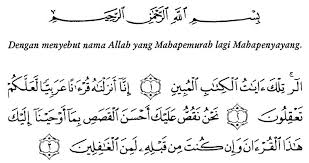 بِسْمِ اللَّهِ الرَّحْمَٰنِ الرَّحِيمِ
Dengan menyebut nama Allah yang Mahapemurah lagi Mahapenyayang.
الٓر ۚ تِلْكَ ءَايَٰتُ الْكِتَٰبِ الْمُبِينِ ۝١ إِنَّآ أَنزَلْنَٰهُ قُرْءَٰنًا عَرَبِيًّا لَّعَلَّكُمْ
تَعْقِلُونَ ۝٢ نَحْنُ نَقُصُّ عَلَيْكَ أَحْسَنَ الْقَصَصِ بِمَآ أَوْحَيْنَآ إِلَيْكَ
هَٰذَا الْقُرْءَانَ وَإِن كُنتَ مِن قَبْلِهِۦ لَمِنَ الْغَٰفِلِينَ ۝٣